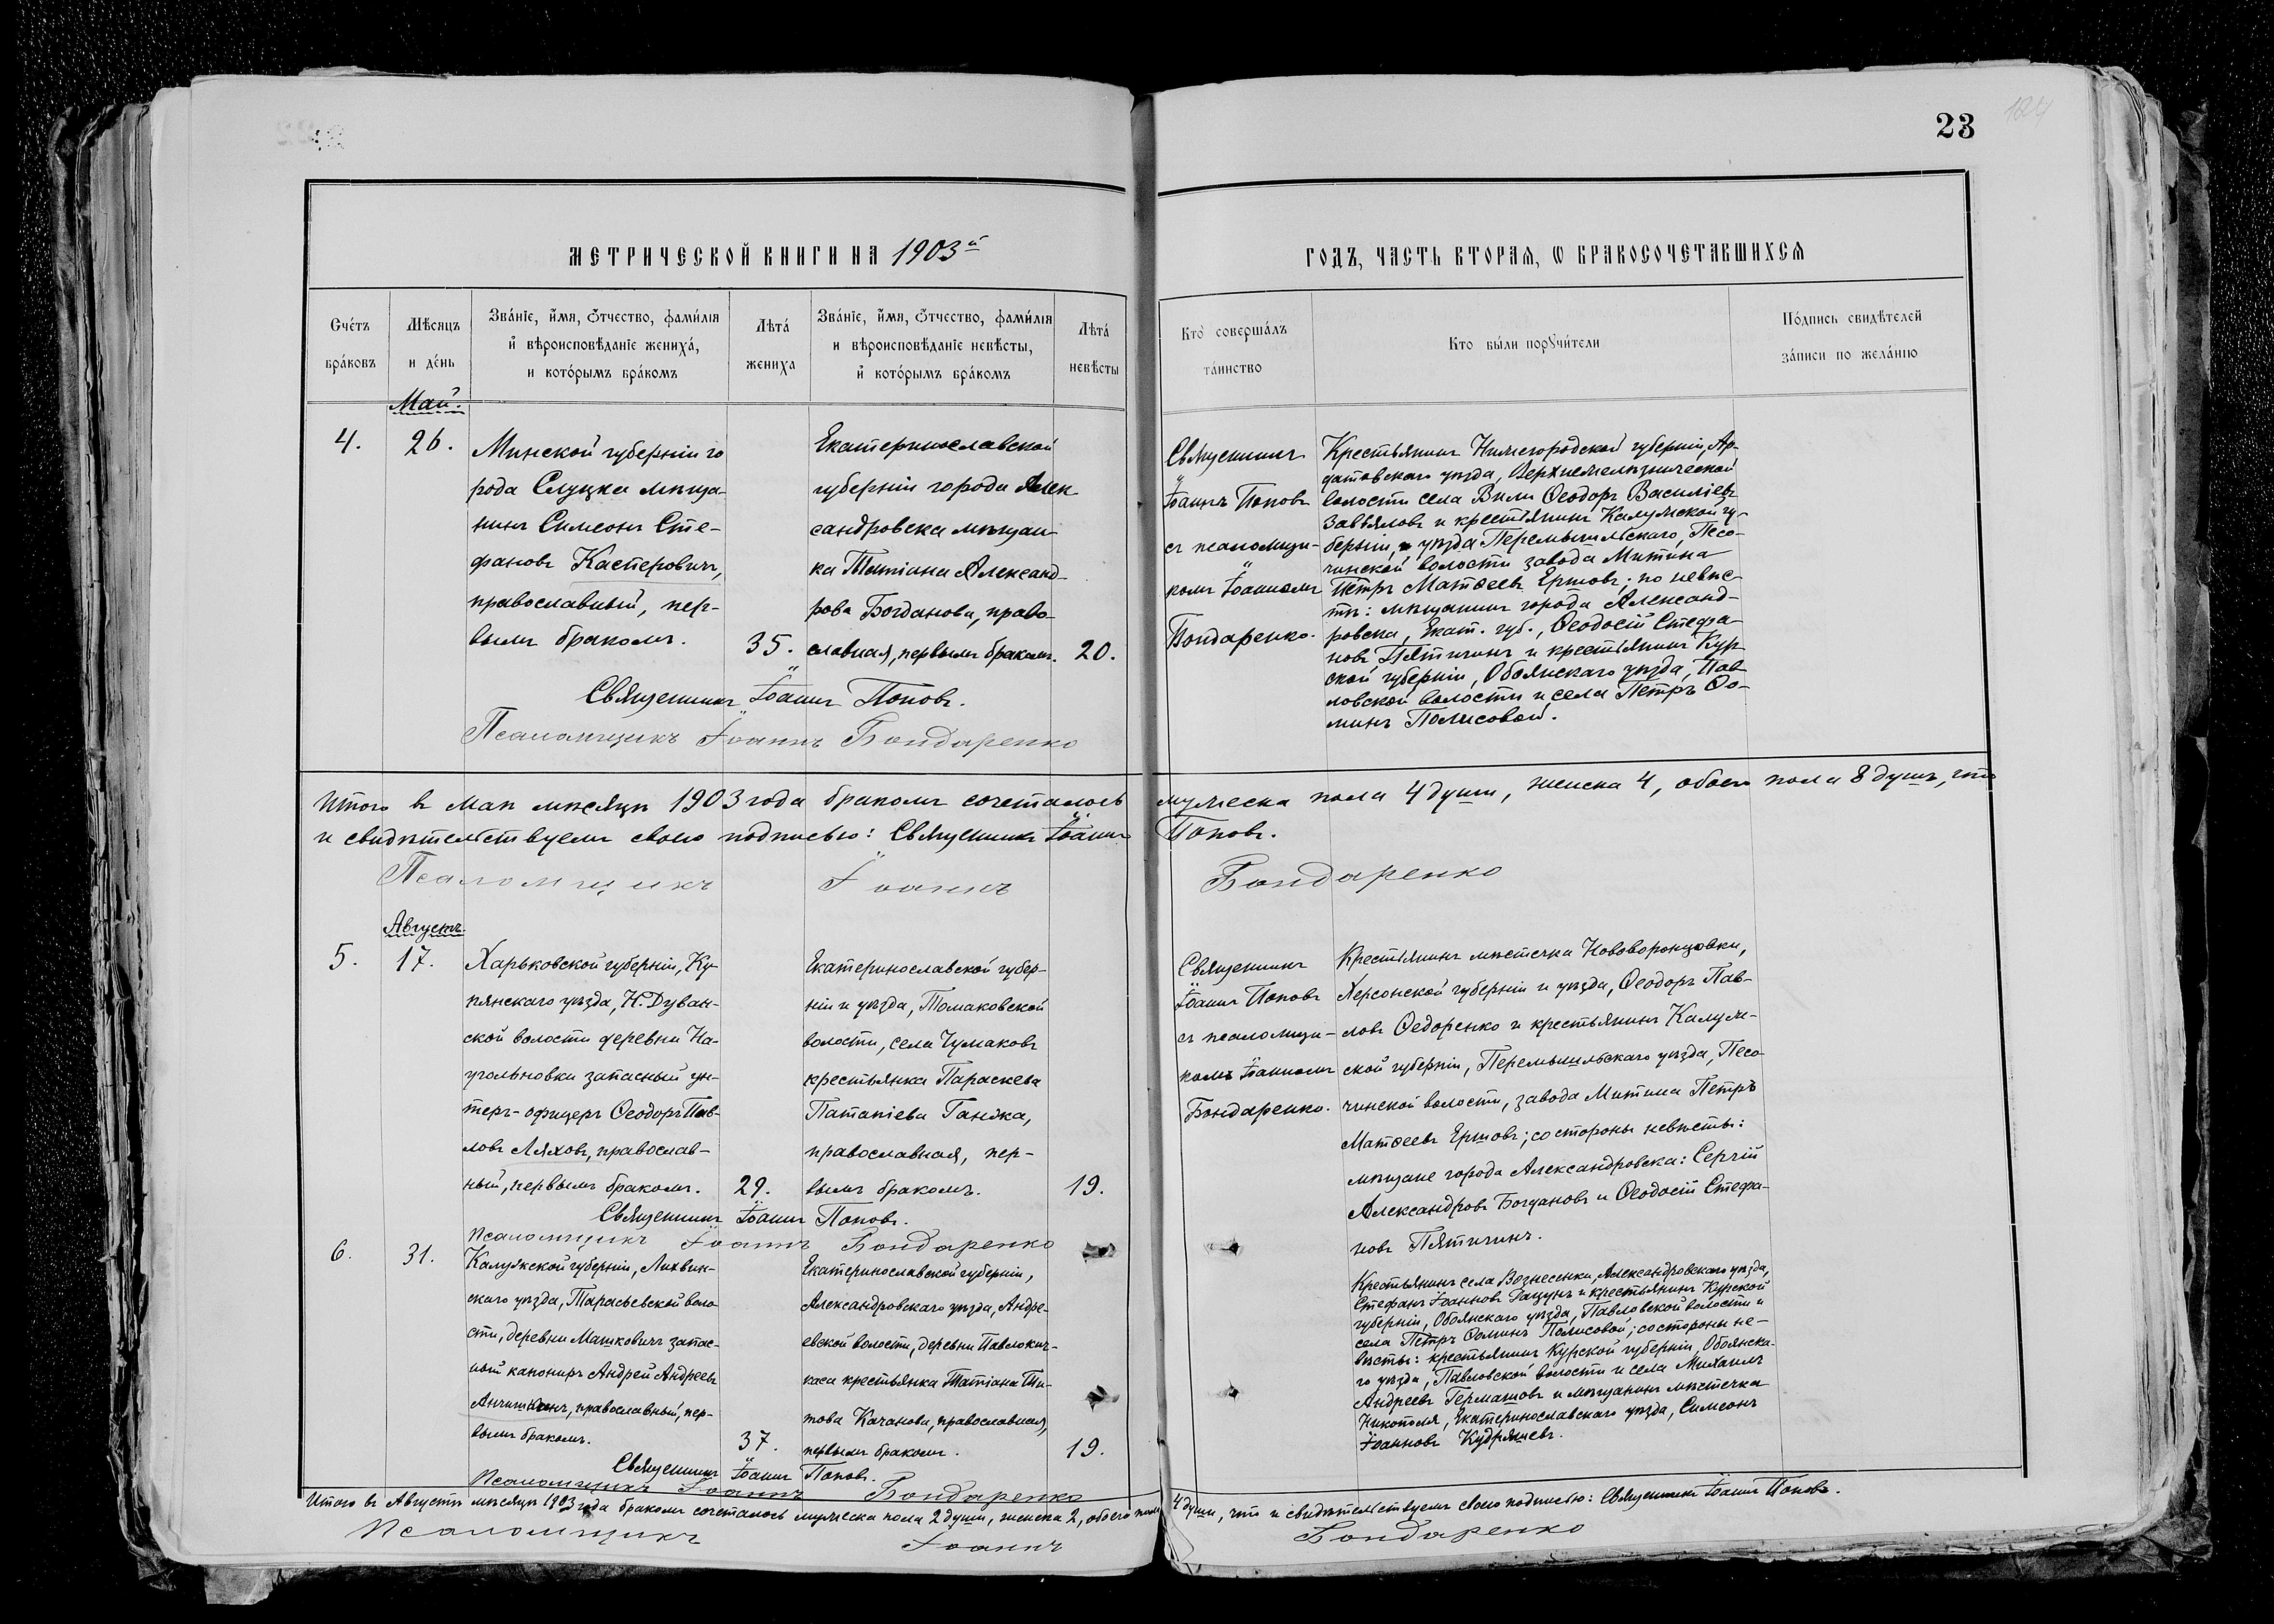 23
124
МЕТРИЧЕСКОЙ КНИГИ НА 1903й
ГОДЪ, ЧАСТЬ ВТОРАЯ, Ѡ БРАКОСОЧЕТАВШИХСЯ
Сче́тъ бра́ковъ
Мѣсяцъ и де́нь
Зва́нїе, и҆́мя, ѻ҆́тчество, фами́лїя
и҆ вѣроисповѣ́данїе жениха́,
и кото́рымъ бра́комъ
Лѣта́ жениха
Зва́нїе, и҆́мя, ѻ҆́тчество, фами́лїя
и вѣроисповѣ́данїе невѣ́сты,
и҆ кото́рымъ бра́комъ
Лѣта́ невѣ́сты
Кто̀ соверша́лъ та́инство
Кто бы́ли порꙋчи́тели
По́дпись свидѣ́телей
за́писи по жела́нїю
Май.
4.
26.
Минской губерніи го
рода Слуцка мѣща-
нинъ Симеонъ Сте-
фановъ Кастеровичъ,
православный, пер-
вымъ бракомъ.
35.
Екатеринославской
губерніи города Алек
сандровска мѣщан
ка Татіана Александ-
рова Богданова, право-
славная, первымъ бракомъ.
20.
Священникъ
Іоаннъ Поповъ
съ псаломщи-
комъ Іоанномъ
Бондаренко.
Крестьянинъ Нижегородской губерніи, Ар-
датовскаго уѣзда,
волости села Вили Ѳеодоръ Василіевъ
Завьяловъ и крестьянинъ Калужской гу-
берніи, уѣзда Перемышльскаго, Песо-
чинской волости завода Митина
Петръ Матѳеевъ Ершовъ; по невѣс-
тѣ: мѣщанинъ города Александ-
ровска, Екат. губ., Ѳеодосій Стефа-
новъ Пятичинъ и крестьянинъ Кур-
ской губерніи, Обоянскаго уѣзда, Пав-
ловской волости и села Петръ Ѳо-
минъ Полисовой.
Священникъ Іоаннъ Поповъ.
Псаломщикъ Іоаннъ Бондаренко
Итого въ маѣ мѣсяцѣ 1903 года бракомъ сочеталось мужеска пола 4 души, женска 4, обоего пола 8 душъ, что
и свидѣтельствуемъ своею подписью: Священникъ Іоаннъ Поповъ.
Псаломщикъ Іоаннъ Бондаренко
Августъ.
5.
17.
Харьковской губерніи, Ку-
пянскаго уѣзда, Н. Дуван-
ской волости деревни На-
угольновки запасный ун-
теръ-офицеръ Ѳеодоръ Пав-
ловъ Ляховъ, православ-
ный, первымъ бракомъ.
29.
Екатеринославской губер-
ніи и уѣзда, Томаковской
волости, села Чумаковъ
крестьянка Параскева
Патапіева Ганжа,
православная, пер-
вымъ бракомъ.
19.
Священникъ
Іоаннъ Поповъ
съ псаломщи-
комъ Іоанномъ
Бондаренко.
Крестьянинъ мѣстечка Нововоронцовки,
Херсонской губерніи и уѣзда, Ѳеодоръ Пав-
ловъ Ѳедоренко и крестьянинъ Калуж-
ской губерніи, Перемышльскаго уѣзда, Песо
чинской волости, завода Митина Петръ
Матѳеевъ Ершовъ; со стороны невѣсты:
мѣщане города Александровска: Сергій
Александровъ Богдановъ и Ѳеодосій Стефа-
новъ Пятичинъ.
Священникъ Іоаннъ Поповъ.
Псаломщикъ Іоаннъ Бондаренко
6.
31.
Калужской губерніи, Лихвин-
скаго уѣзда, Тарасьевской воло
сти, деревни Машковичъ запас-
ный канониръ Андрей Андреевъ
православный, пер-
вымъ бракомъ.
37.
Екатеринославской губерніи,
Александровскаго уѣзда, Андре-
евской волости, деревни Павлокич-
каса крестьянка Татіана Ти-
това Качанова, православная,
первымъ бракомъ.
19.
Крестьянинъ села Вознесенки, Александровскаго уѣзда,
Стефанъ Іоанновъ Гацунъ и крестьянинъ Курской
губерніи, Обоянскаго уѣзда, Павловской волости и
села Петръ Ѳоминъ Полисовой; со стороны не-
вѣсты: крестьянинъ Курской губерніи, Обоянска-
го уѣзда, Павловской волости и села Михаилъ
Андреевъ Гермашовъ и мѣщанинъ мѣстечка
Никополя, Екатеринославскаго уѣзда, Симеонъ
Іоанновъ Кудряшевъ.
Священникъ Іоаннъ Поповъ.
Псаломщикъ Іоаннъ Бондаренко
Итого въ Августѣ мѣсяцѣ 1903 года бракомъ сочеталось мужеска пола 2 души, женска 2, обоего пола 4 души, что и свидѣтельствуемъ своею подписью: Священникъ Іоаннъ Поповъ.
Псаломщикъ Іоаннъ Бондаренко